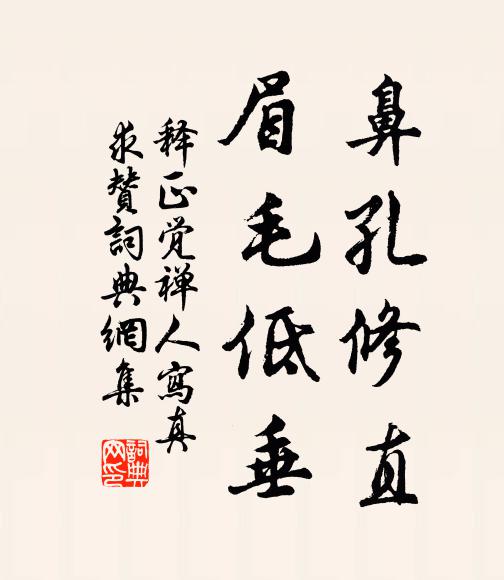 鼻孔修直
眉毛低垂
释正觉禅人寫真
求赞詞典網集
詞典网印